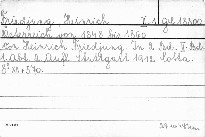 Friedjung, Heinrich V. 1. gh 18200
Österreich von 1848 bis 1860
von Heinrich Friedjung. In 2 Bd. I. Bd.
1. Abt. 2. Aufl. Stuttgart 1912. Cotta.
8° XII + 540.